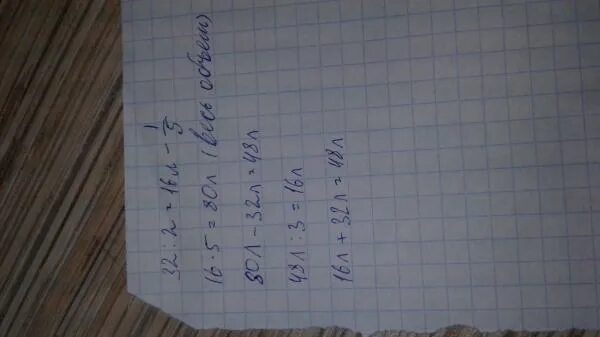 32 : 2 = 16 л - 1/5
16 · 5 = 80 л (весь объем)
80 л - 32 л = 48 л
48 л : 3 = 16 л
16 л + 32 л = 48 л